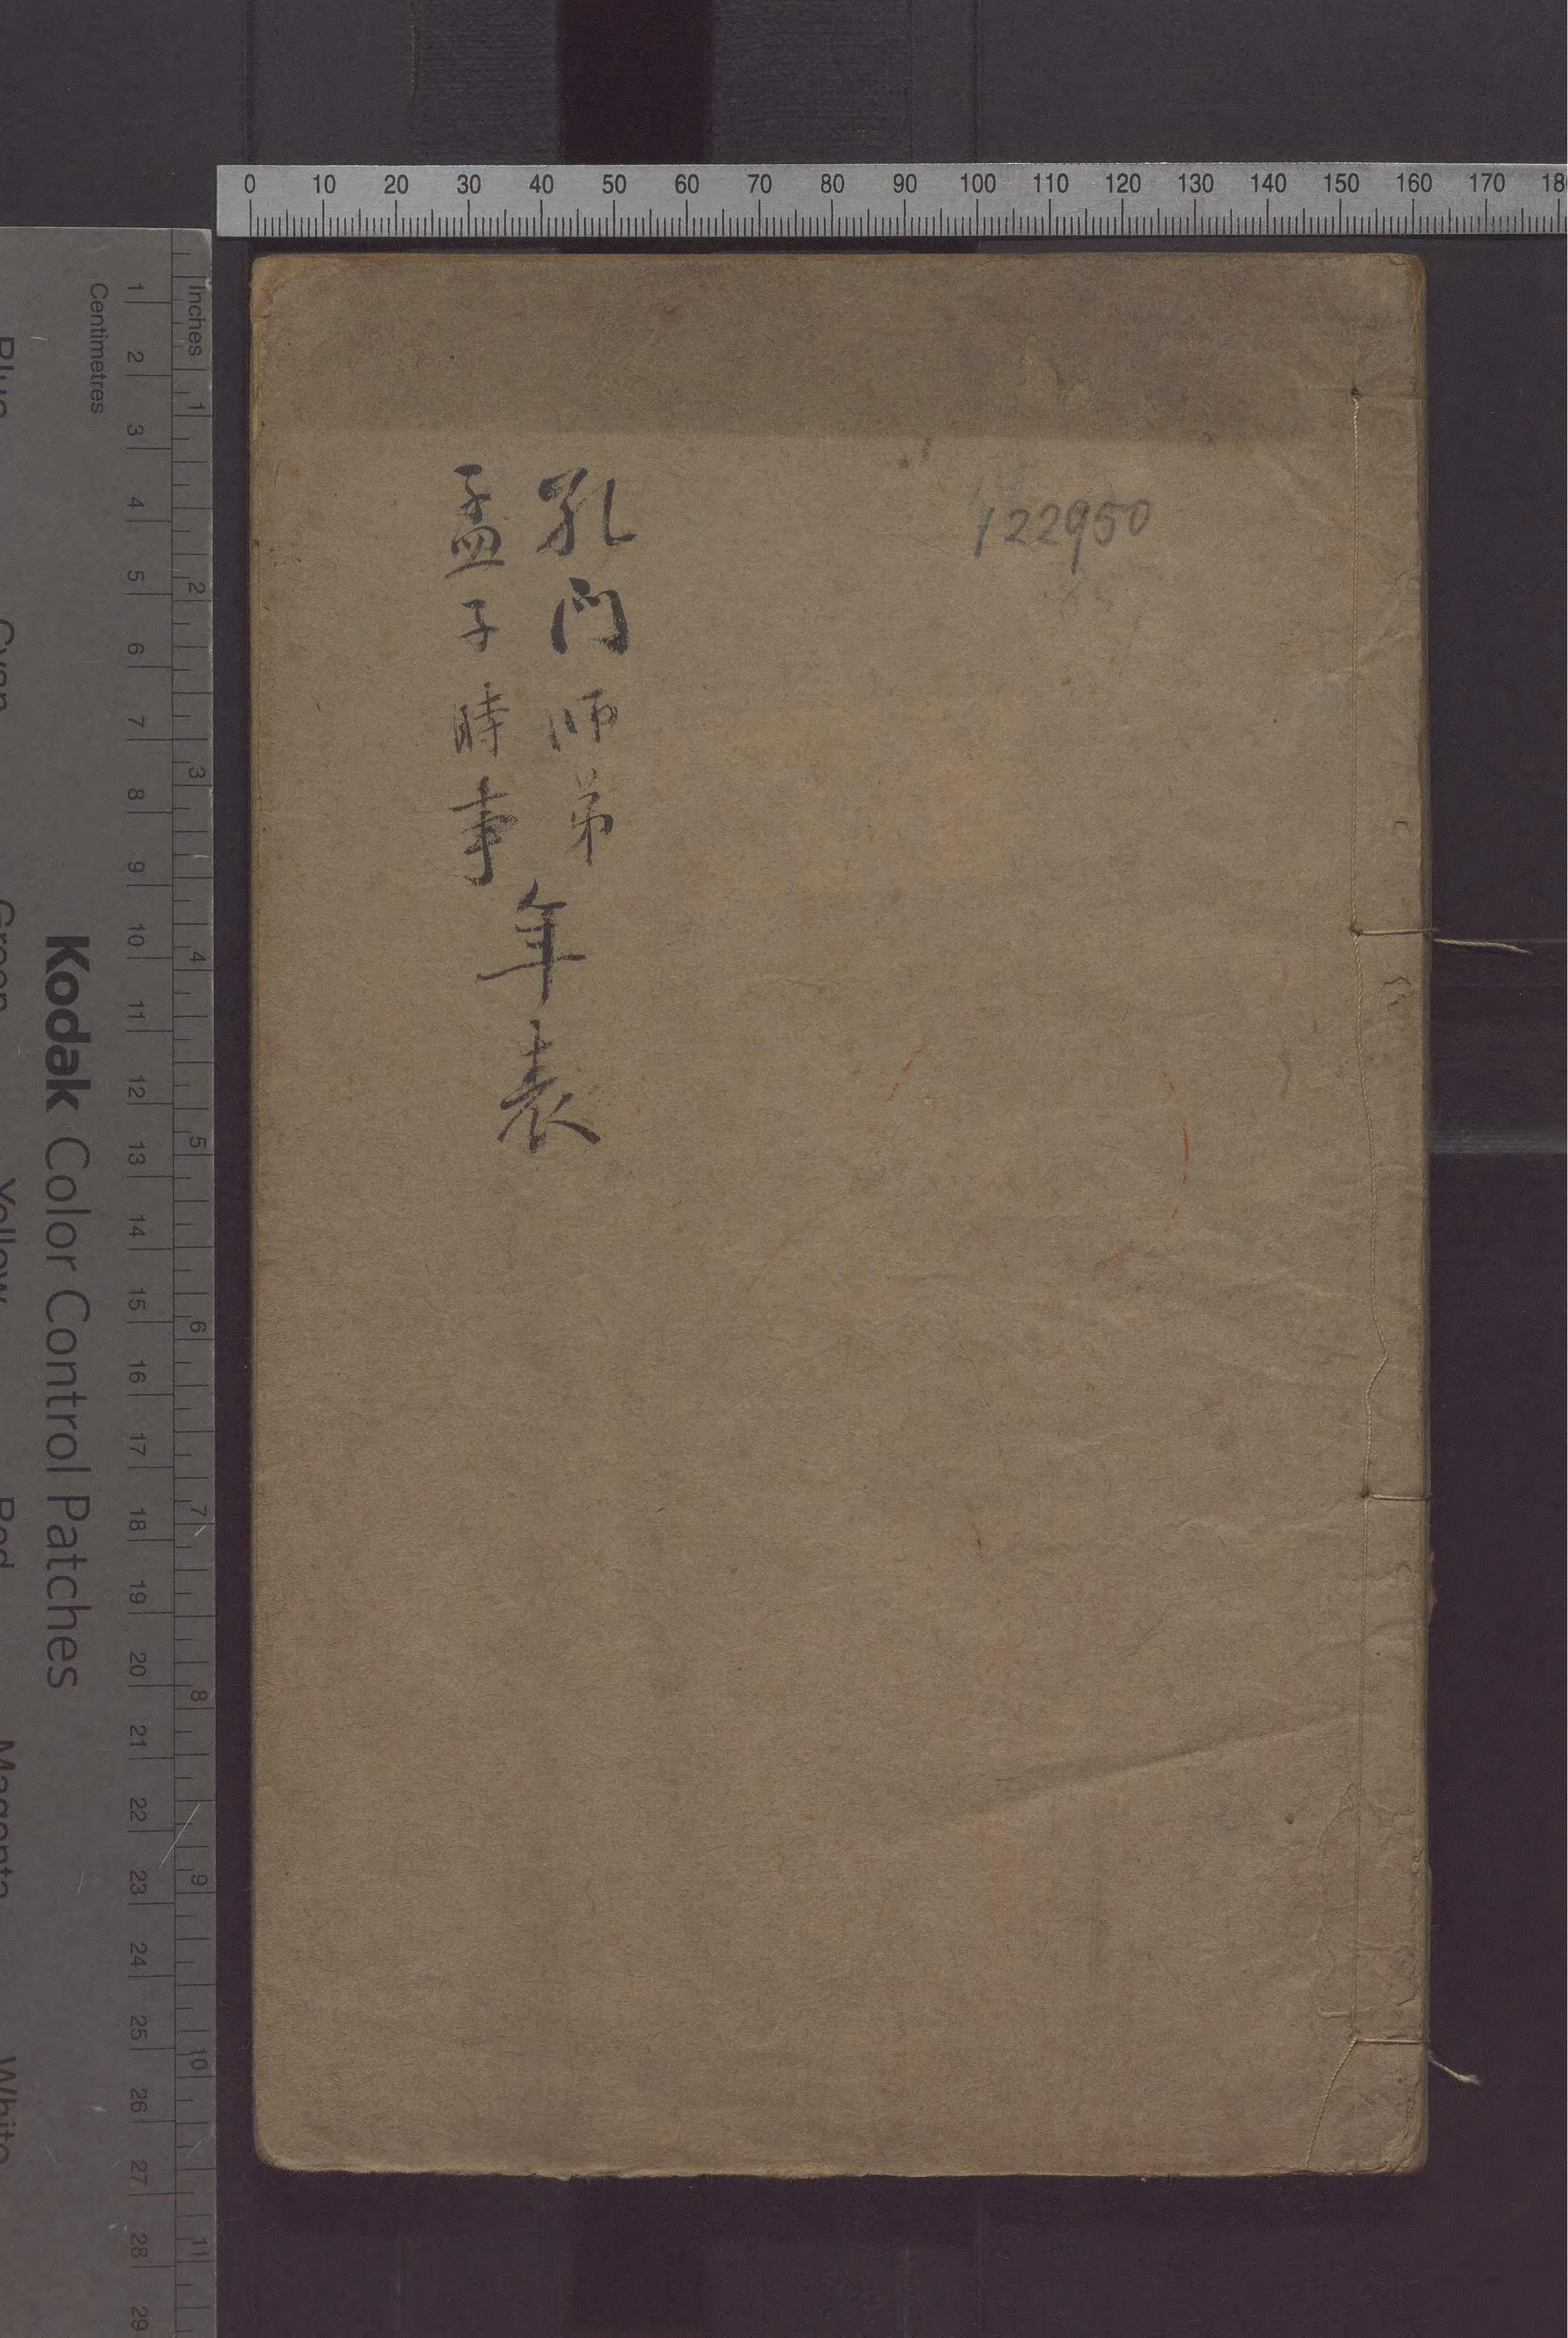 0 10 20 30 40 50 60 70 80 90 100 110 120 130 140 150 160 170 18
122950
孔門師弟
孟子時事
年表
Inches
1 2 3 4 5 6 7 8 9 10 11
Centimetres
1 2 3 4 5 6 7 8 9 10 11 12 13 14 15 16 17 18 19 20 21 22 23 24 25 26 27 28 29
Kodak Color Control Patches
Blue Cyan Green Yellow Red Magenta White